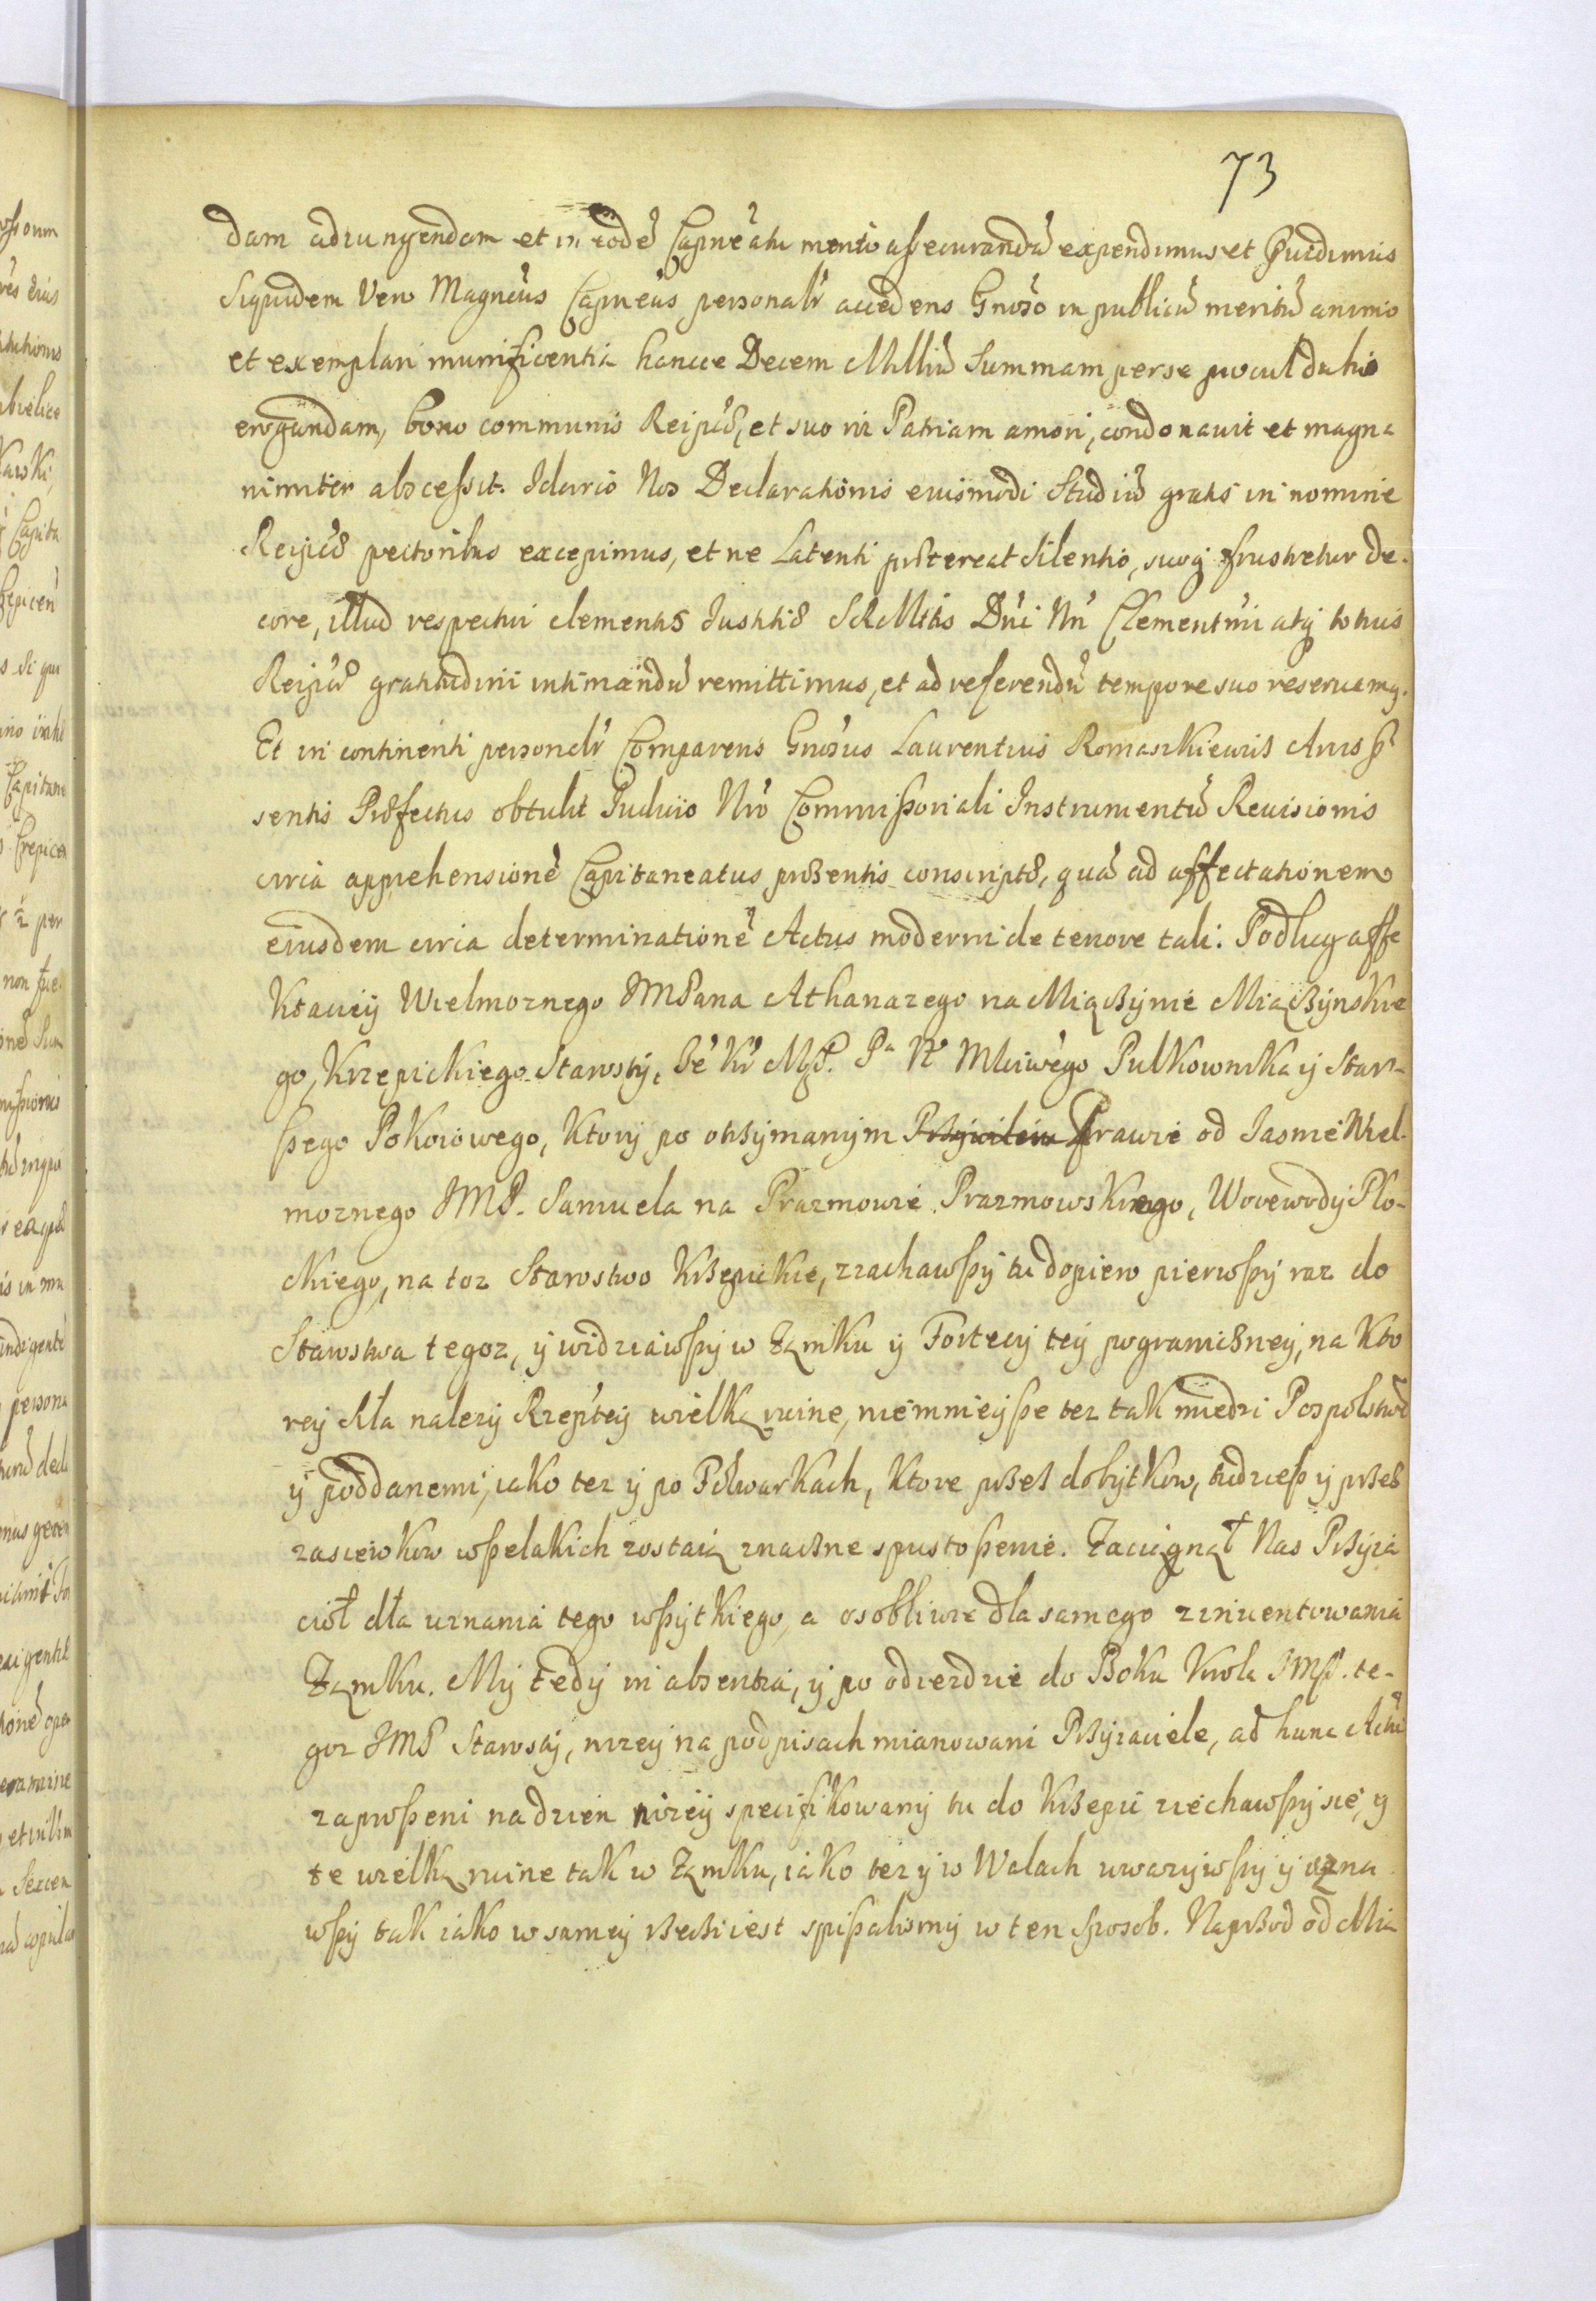 73
dam adiungendam et in eodē Capneātu merito assecurandū expendimus et
Siquidem Vero Magncus Capneus personalr accedens Gnoso in publicū meritū animo
et exemplari munificentia hancce Decem Milliū Summam per se procul dubio
erogandam, bono communis Reipub, et suo in Patriam amori, condonauit et magna
nimiter abscessit. Idcirco Nos Declarationis eiusmodi Studiū gratis in nomine
Reipub pectoribus excepimus, et ne Latenti prætereat Silentio, suoq frustretur de-
core, illud respectui clementis Iustitiæ SRMttis Dni Nri Clementmi atq totius
Reipub gratitudini intimandū remittimus, et ad referendū tempore suo reseruamq.
Et in continenti personalr Comparens Gnosus Laurentius Romaszkiewicz Arcis
sentis Præfectus obtulit Iudicio Nro Commissoriali Instrumentū Reuisionis
circa apprehensionē Capitaneatus præsentis conscriptæ, quā ad affectationem
eiusdem circa determinationē Actus moderni de tenore tali: Podług affe
ktaciey Wielmoznego JMPana Athanazego na Miączynie Miączynskie
go, Krzepickiego Starosty, Mciwego Pułkownika y Star-
szego Pokoiowego, ktory po otrzymanym Przywileiu Prawie od Jasnie Wiel-
moznego JMP. Samuela na Prazmowie Prazmowskiego, Woiewody Plo-
ckiego, na toz Starostwo Krzepickie, ziachawszy tu dopiero pierwszy raz do
Starostwa tegoz, y widziawszy w Zamku y Fortecy tey pograniczney, na kto
rey siła nalezy Rzeptey wielką ruine, niemnieysze tez tak miedzi Pospolstwē
y poddanemi, iako tez y po Folwarkach, ktore przez dobytkow, tudziesz y przez
zasiewkow wszelakich zostaią znaczne spustoszenie. Zaciągnął Nas Przyia
cioł dla uznania tego wszytkiego, a osobliwie dla samego zinuentowania
Zamku. My tedy in absentia, y po odiezdzie do Boku Krola JMP. te-
goz JMP Starosty, nizey na podpisach mianowani Przyiaciele, ad hunc Actū
zaproszeni na dzien nizey specifikowany tu do Krzepic ziechawszy sie, y
te wielką ruine tak w Zamku, iako tez y w Walach uwazywszy y uzna
wszy tak iako w samey rzeczy iest spisalismy w ten sposob. Naprzod od Mia